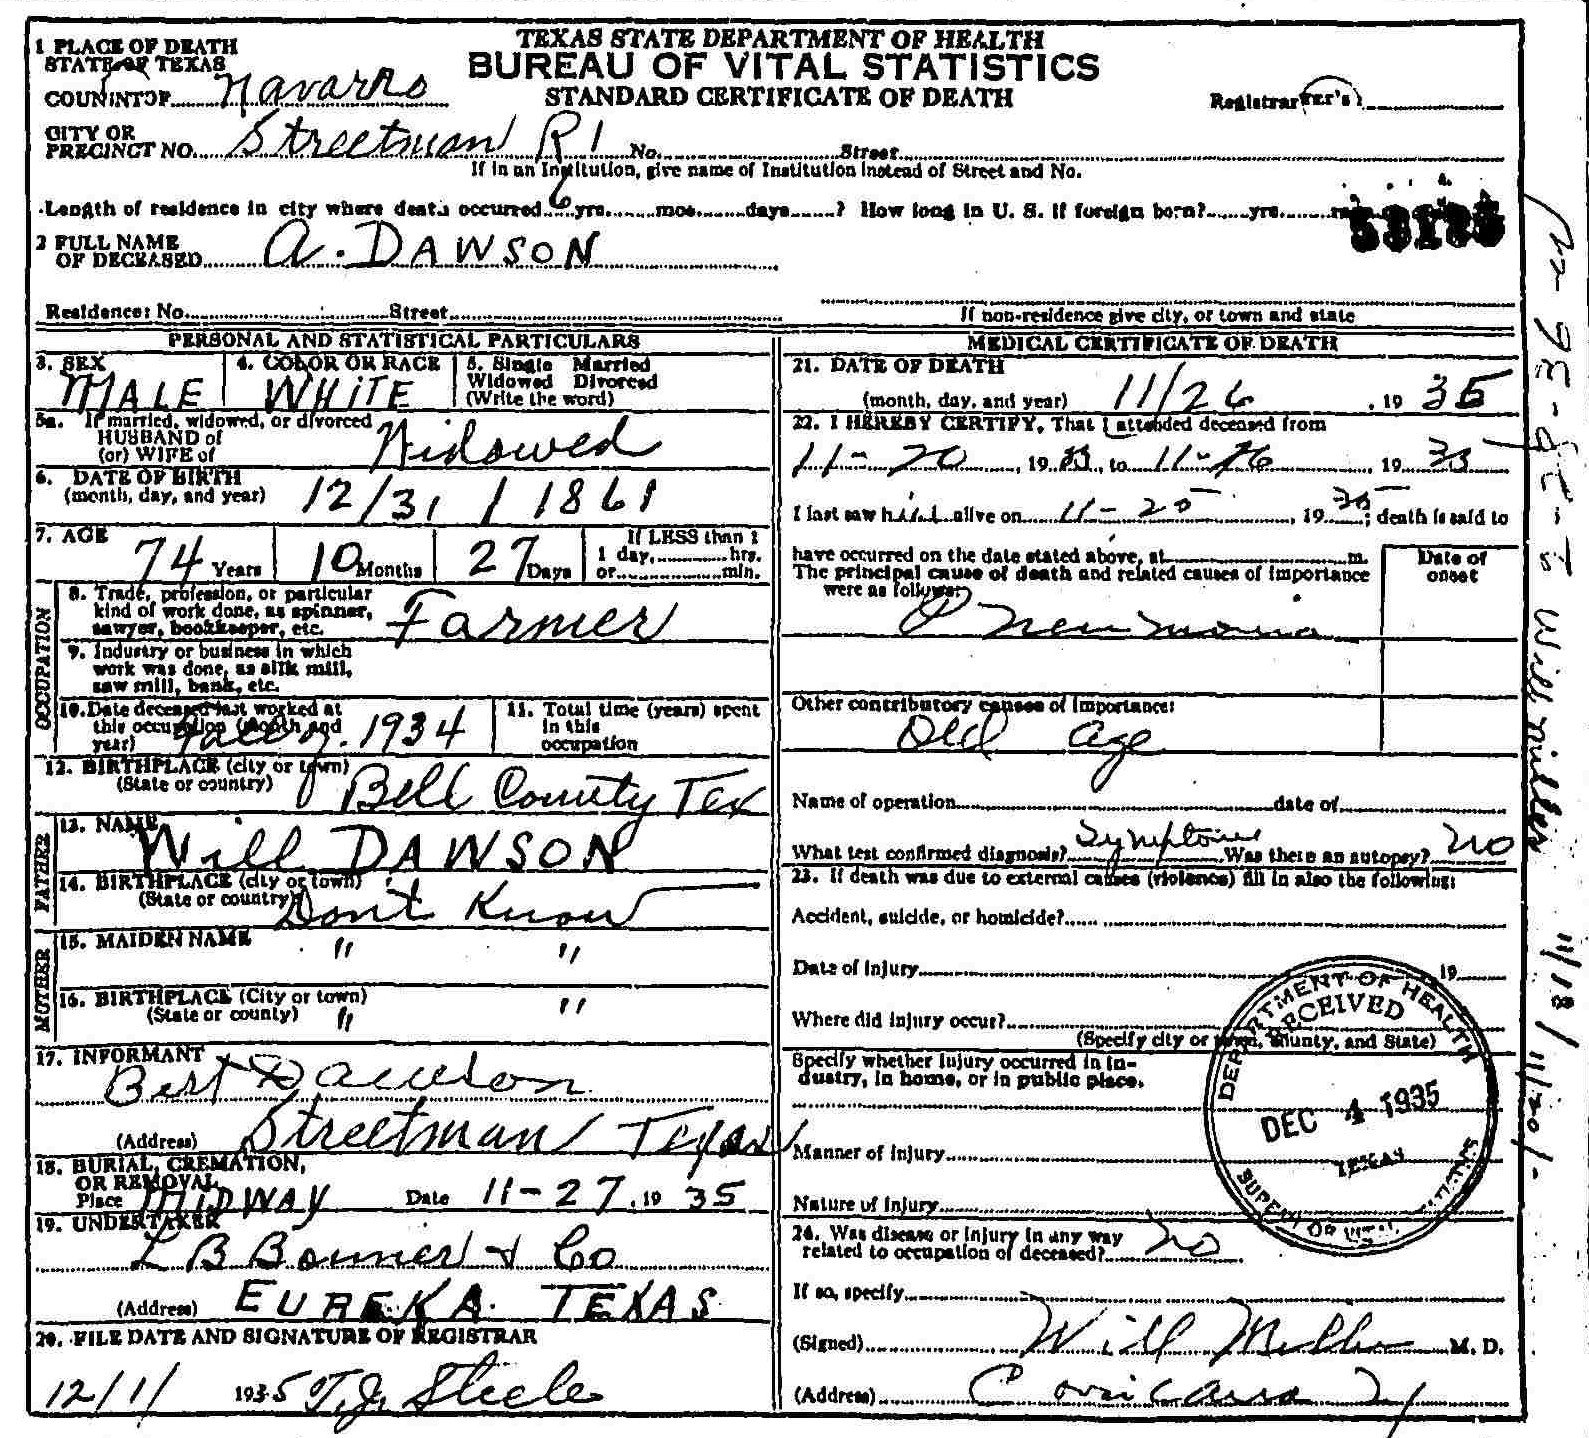 TEXAS STATE DEPARTMENT OF HEALTH
BUREAU OF VITAL STATISTICS
STANDARD CERTIFICATE OF DEATH
1 PLACE OF DEATH
STATE OF TEXAS
COUNTY OF Navarro
Registrar's
CITY OR
PRECINCT NO. Streetman R 1 No. Street
If in an Institution, give name of Institution instead of Street and No.
Length of residence in city where death occurred 6 yrs. mos. days ? How long in U. S. if foreign born? yrs.
2 FULL NAME
OF DECEASED A. DAWSON
Residence: No. Street
If non-residence give city, or town and state
PERSONAL AND STATISTICAL PARTICULARS
3. SEX
MALE
4. COLOR OR RACE
WHITE
5. Single Married
Widowed Divorced
(Write the word)
5a. If married, widowed, or divorced
HUSBAND of
(or) WIFE of Widowed
6. DATE OF BIRTH
(month, day, and year) 12/31/1861
7. AGE
74 Years 10 Months 27 Days
If LESS than 1
1 day, hrs.
or min.
OCCUPATION
8. Trade, profession, or particular
kind of work done, as spinner,
sawyer, bookkeeper, etc. Farmer
9. Industry or business in which
work was done, as silk mill,
saw mill, bank, etc.
10. Date deceased last worked at
this occupation (month and
year) 1934
11. Total time (years) spent
in this
occupation
12. BIRTHPLACE (city or town)
(State or country) Bell County Tex
FATHER
13. NAME
Will DAWSON
14. BIRTHPLACE (city or town)
(State or country) Dont Know
MOTHER
15. MAIDEN NAME " "
16. BIRTHPLACE (City or town)
(State or county) " "
17. INFORMANT
Bert Dawson
(Address) Streetman Texas
18. BURIAL, CREMATION,
OR REMOVAL
Place MIDWAY Date 11-27, 1935
19. UNDERTAKER
L B Bonner & Co
(Address) EUREKA TEXAS
20. FILE DATE AND SIGNATURE OF REGISTRAR
12/1/ 1935 T.J. Steele
MEDICAL CERTIFICATE OF DEATH
21. DATE OF DEATH
(month, day, and year) 11/26, 1935
22. I HEREBY CERTIFY, That I attended deceased from
11-20, 19 , to 11-26, 1935
I last saw him alive on 11-25, 1935; death is said to
have occurred on the date stated above, at m.
The principal cause of death and related causes of importance
were as follows:
Date of
onset
Pneumonia
Other contributory causes of importance:
Old age
Name of operation date of
What test confirmed diagnosis? Symptoms Was there an autopsy? no
23. If death was due to external causes (violence) fill in also the following:
Accident, suicide, or homicide?
Date of injury 19
Where did injury occur?
(Specify city or town, county, and State)
Specify whether injury occurred in in-
dustry, in home, or in public place.
Manner of injury
Nature of injury
24. Was disease or injury in any way
related to occupation of deceased? no
If so, specify
(Signed) Will Miller M. D.
(Address) Corsicana
DEPARTMENT OF HEALTH
RECEIVED
DEC 4 1935
TEXAS
Will Miller